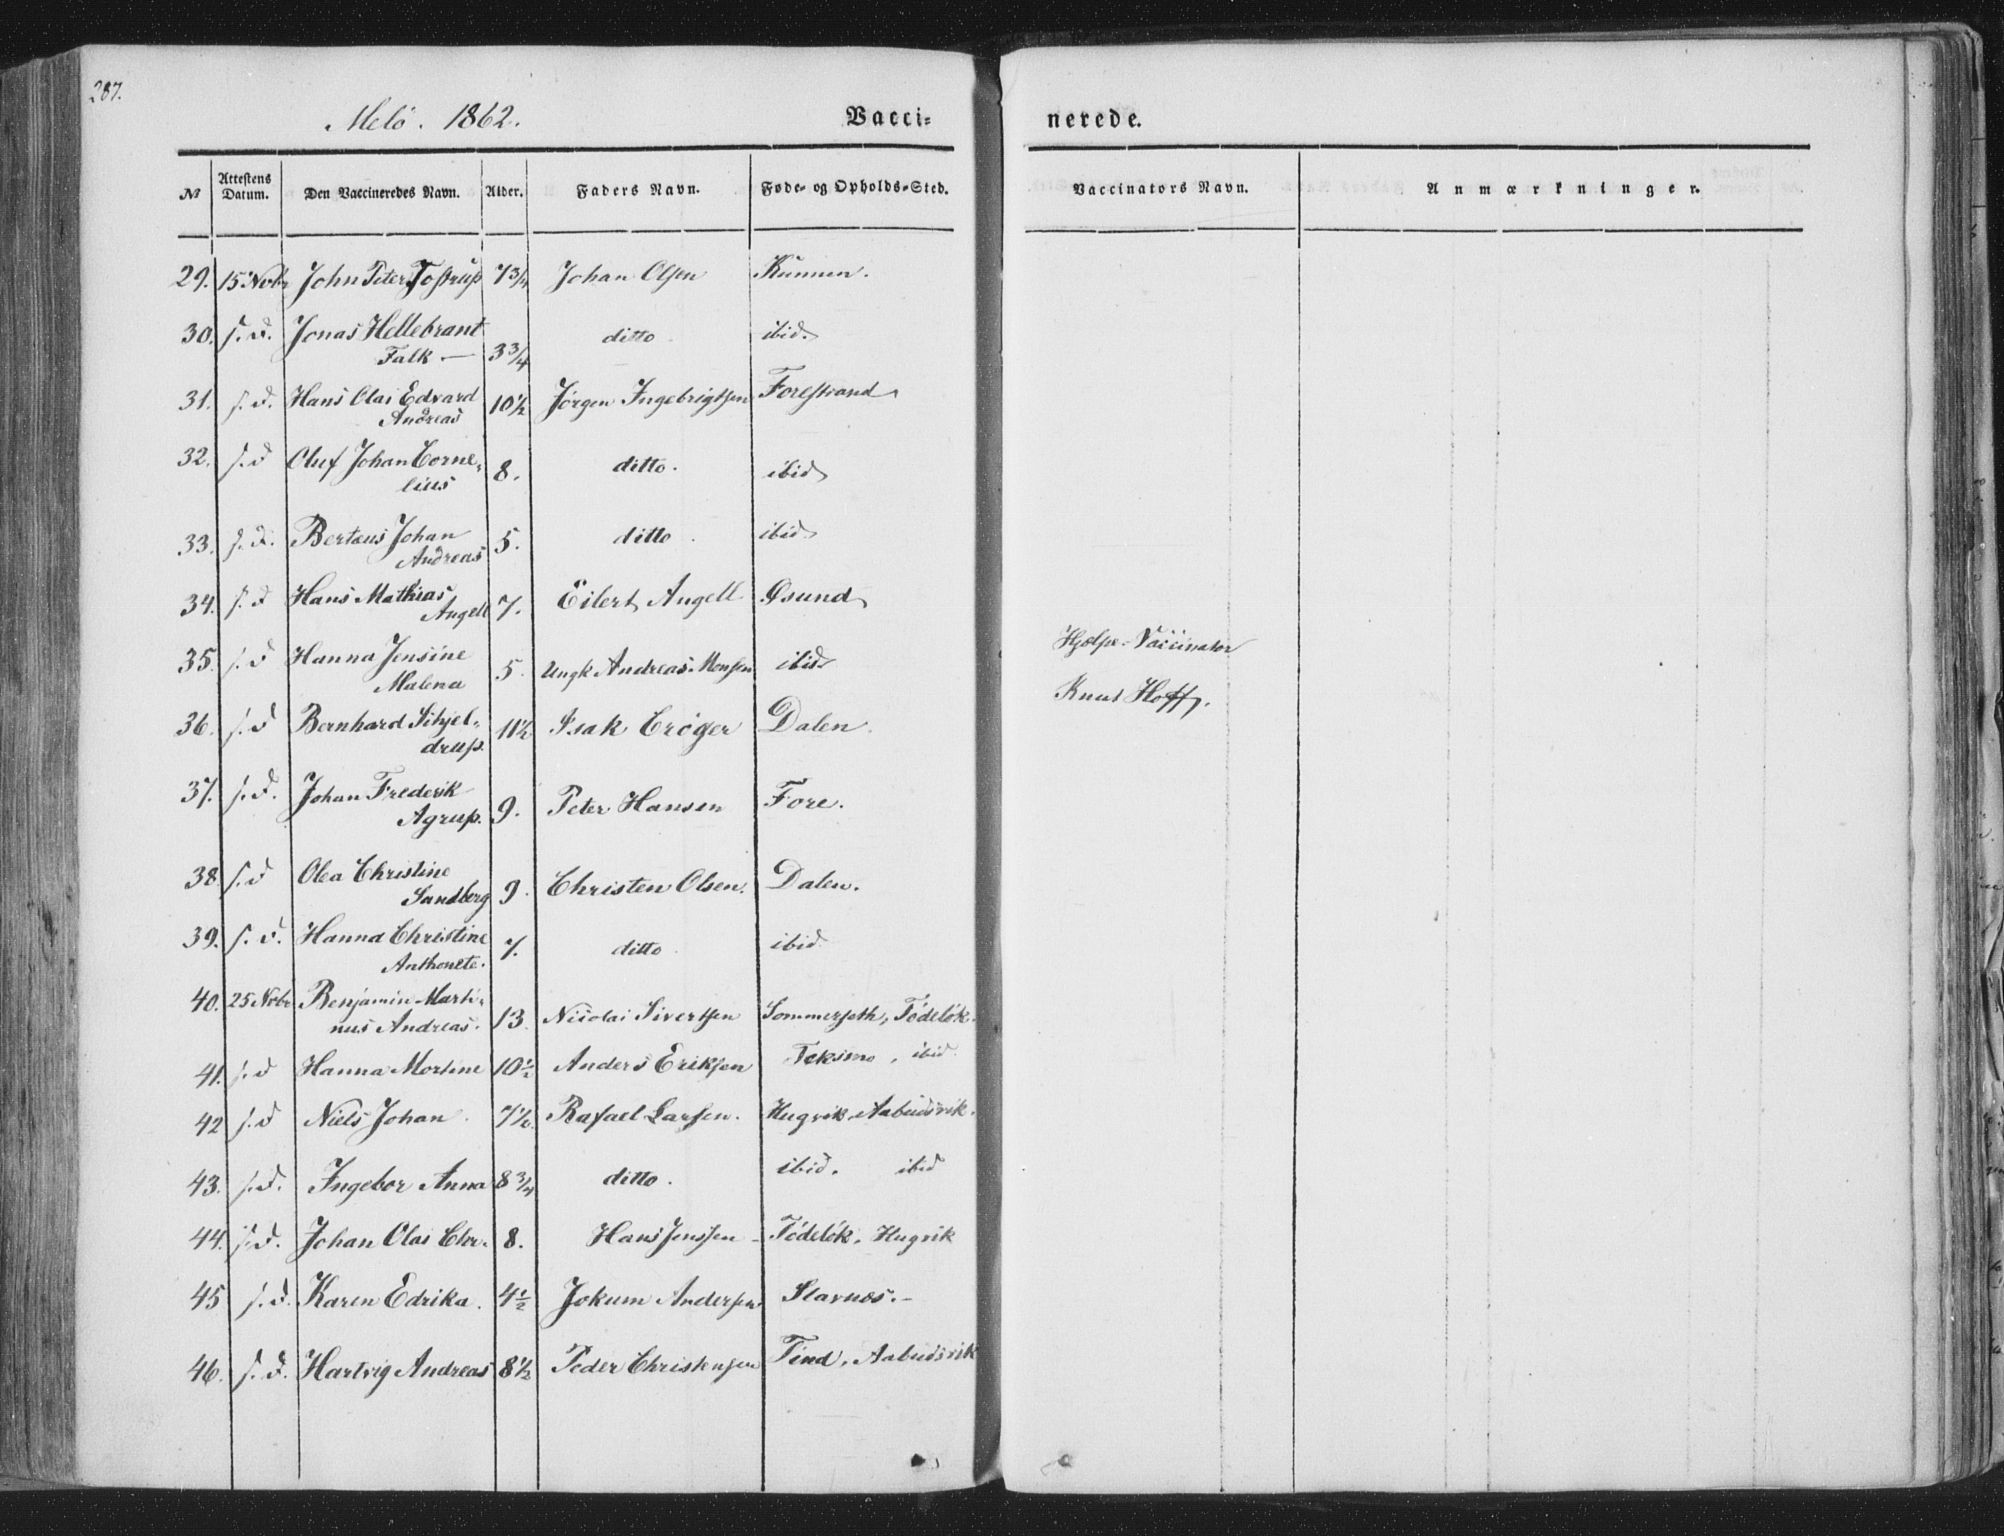 287.
Melö. 1862. Vacci= nerede.
№ Attestens Datum. Den Vaccineredes Navn. Alder. Faders Navn. Føde- og Opholds-Sted. Vaccinators Navn. Anmærkninger.
29. 15 Novbr John Peter Tostrup 7 3/4 Johan Olsen Kunnen.
30. s. d. Jonas Hellebrant
Falk — 3 3/4 ditto ibid.
31. s. d. Hans Olai Edvard 10 1/2 Jörgen Ingebrigtsen Forestrand
Andreas
32. s. d Oluf Johan Corne-
lius 8. ditto. ibid
33. s. d. Bertæus Johan
Andreas 5. ditto. ibid
34. s. d Hans Mathias
Angell 7. Eilert Angell Øsund
35. s. d Hanna Jensine
Malena 5. Ungk Andreas Monsen ibid
Hjelpe-Vaccinator
Knut Hoff.
36. s. d Bernhard Schjel-
drup. 11 1/2 Isak Cröger Dalen.
37. s. d. Johan Frederik
Agrup. 9. Peter Hansen Fore.
38 s. d Olea Christine
Sandberg 9. Christen Olsen. Dalen.
39. s. d. Hanna Christine
Anthonete. 7. ditto ibid
40. 25 Nvbr Benjamin Marti-
nus Andreas. 13. Nicolai Sivertsen Sommerseth, Födelök.
41. s. d Hanna Mortine 10 1/2 Anders Eriksen Teksmo, ibid.
42 s. d Niels Johan. 7 1/2 Rafael Larsen. Hugvik Aabudsvik.
43. s. d. Ingebor Anna 8 3/4 ditto. ibid. ibid
44. s. d. Johan Olai Chr. 8. Hans Jenssen - Födelök, Hugvik
45 s. d. Karen Edrika. 4 1/2 Jokum Andersen Stavnæs. -
46. s. d. Hartvig Andreas 8 1/2 Peder Christensen Tind, Aabudsvik